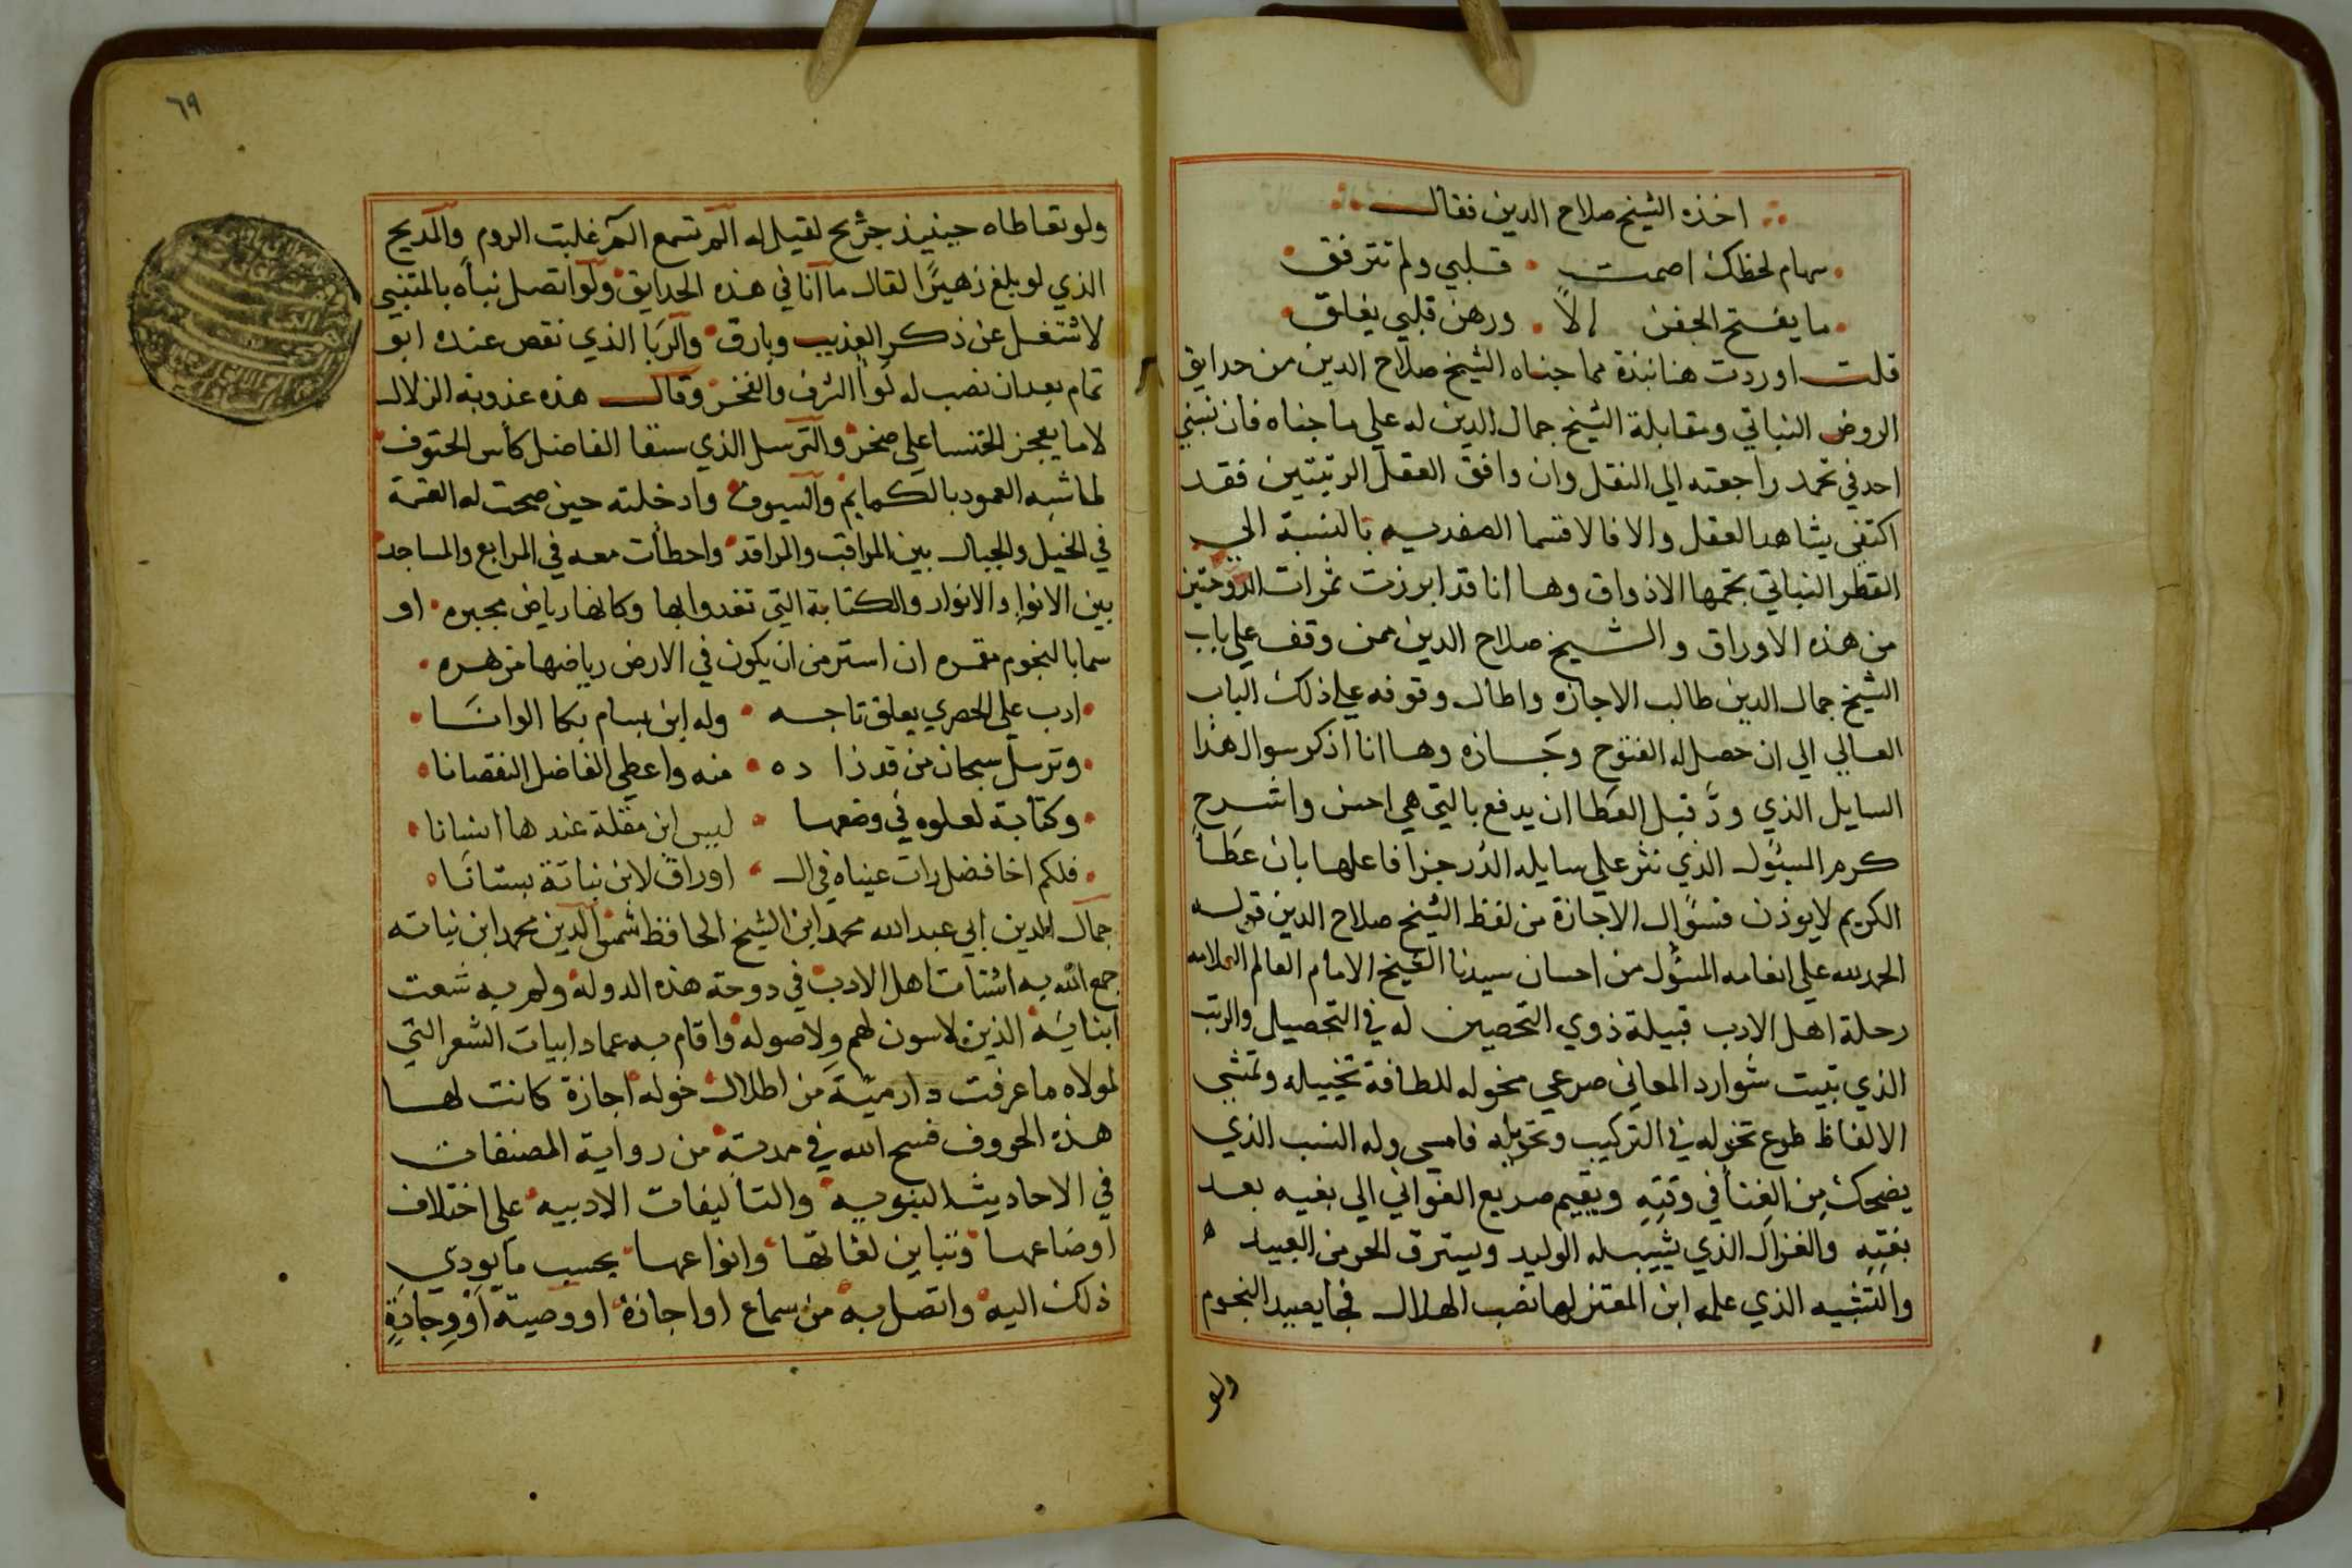 اخذه الشيخ صلاح الدين فقال
سهام لحظك اصمت • قلبي ولم تترفق
ما يفتح الجفن الا • ورهن قلبي يغلق
قلت اوردت هنا نبذة مما جناه الشيخ صلاح الدين من حدايق
الروض النباتي ومقابلة الشيخ جمال الدين له علي ما جناه فان نسبني
احد في تحمد راجعته الي النقل وان وافق العقل الرتبتين فقد
اكتفي بشاهد العقل والا فالاقسما الصفديه بالنسبة الي
القطر النباتي بحتمها الاذواق وها انا قد ابرزت ثمرات الدوحتين
من هذه الاوراق والشيخ صلاح الدين ممن وقف علي باب
الشيخ جمال الدين طالب الاجازه واطال وقوفه علي ذلك الباب
العالي الي ان حصل له الفتوح وجازه وها انا اذكر سوال هذا
السايل الذي ود قبل العطا ان يدفع بالتي هي احسن واشرح
كرم المسئول الذي نثر علي سايله الدر جزافا علها بان عطا
الكريم لا يوذن فسؤال الاجازة من لفظ الشيخ صلاح الدين قوله
الحمد لله علي انعامه المسئول من احسان سيدنا الشيخ الامام العالم العلامه
رحلة اهل الادب قبيلة ذوي التحصين له في التحصيل والرتب
الذي تبيت شوارد المعاني صرعي مخوله للطافة تخييله وتمشي
الالفاظ طوع تخوله في التركيب وتحويله فامسي وله النسب الذي
يضحك من الغنا في وقته ويقيم صريع الغواني الي بغيه بعد
بغته والغزال الذي يشيب له الوليد ويسترق الحر من العبيد
والتشبيه الذي علم ابن المعتز لها نصب الهلال فخا يصيد النجوم
ولو
٦٩
ولو تعاطاه حينيذ جريح لقيل له الم تسمع الم غلبت الروم والمديح
الذي لو بلغ زهيرا لقال ما انا في هذه الحدايق ولو اتصل نباه بالمتنبي
لاشتغل عن ذكر العذيب وبارق والربا الذي نقص عنده ابو
تمام بعد ان نصب له لوا الشرف والفخر وقال هذه عذوبة الزلال
لا ما يعجز الخنسا علي صخر والترسل الذي سقا الفاضل كأس الحتوف
لما شبه العمود بالكمايم والسيوف وادخلته حين صحت له القسمة
في الخيل والجبال بين المراقب والمراقد واحطأت معه في المرابع والمساجد
بين الانوا والانوار والكتابة التي تغدوا بها وكانها رياض محبره او
سما بالنجوم مقمره ان استر من ان يكون في الارض رياضها مزهره
ادب علي الحصري يعلق تاجه • وله ابن بسام بكا الوانا
وترسل سبحان من قد زا ده • منه واعطي الفاضل النقصانا
وكتابة لعلوه في وضعها • ليس ابن مقلة عندها انسانا
فلكم اخا فضل رات عيناه في ال • اوراق لابن نباتة بستانا
جمال الدين ابي عبد الله محمد ابن الشيخ الحافظ شمس الدين محمد ابن نباته
جمع الله به اشتات اهل الادب في دوحة هذه الدوله ولم به شعت
ابنايه الذين لا سون لهم ولا صوله واقام به عماد ابيات الشعر التي
لمولاه ما عرفت دارمية من اطلال خوله اجازة كانت لها
هذه الحروف فسح الله في مدته من رواية المصنفات
في الاحاديث النبويه والتأليفات الادبيه علي اختلاف
اوضاعها وتباين لغاتها وانواعها بحسب ما يودي
ذلك اليه واتصل به من سماع او اجازة او وصية او وجادة